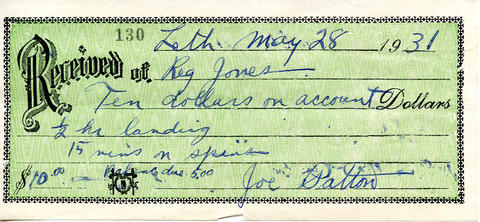 130 Leth. May 28 1931
Received of Reg Jones
Ten dollars on account Dollars
½ hr landing
15 mins on spins
$10.00 Balance due 5.00
Joe Patton